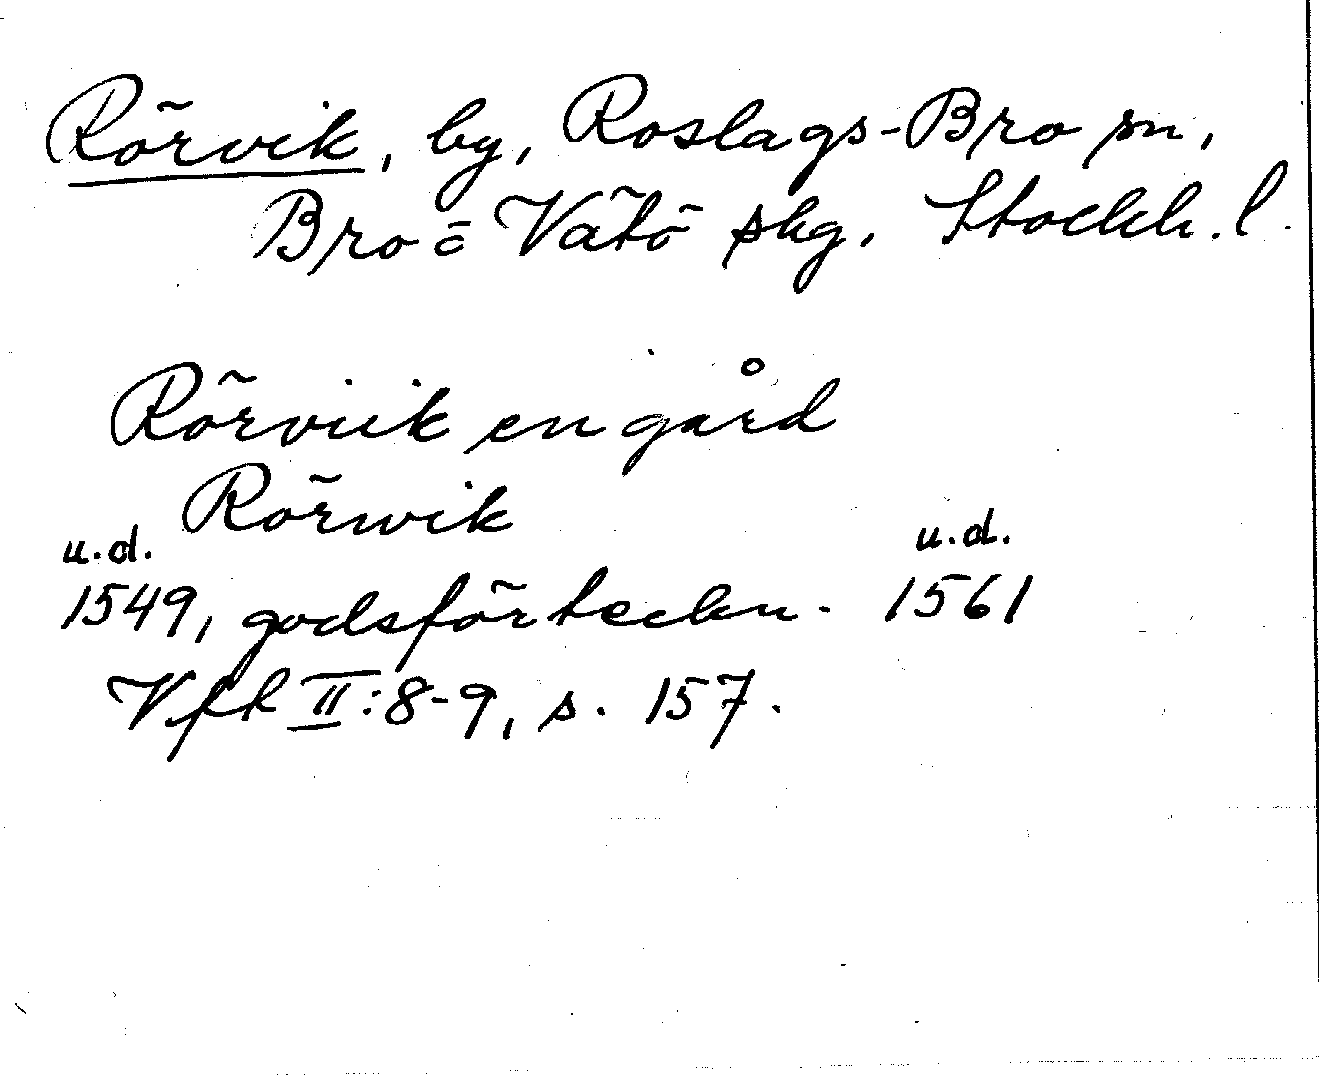 Rörvik, by, Roslags-Bro sn,
Bro o Vätö skg. Stockh. l.
Rörviik en gård
Rörwik
u.d. u.d.
1549, godsförteckn. 1561
Vfk II:8-9, s. 157.